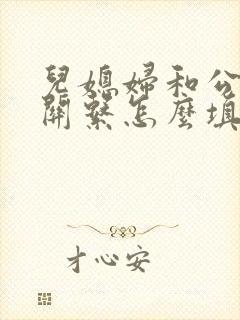 兒媳婦和公
關繫怎麼填
才心安